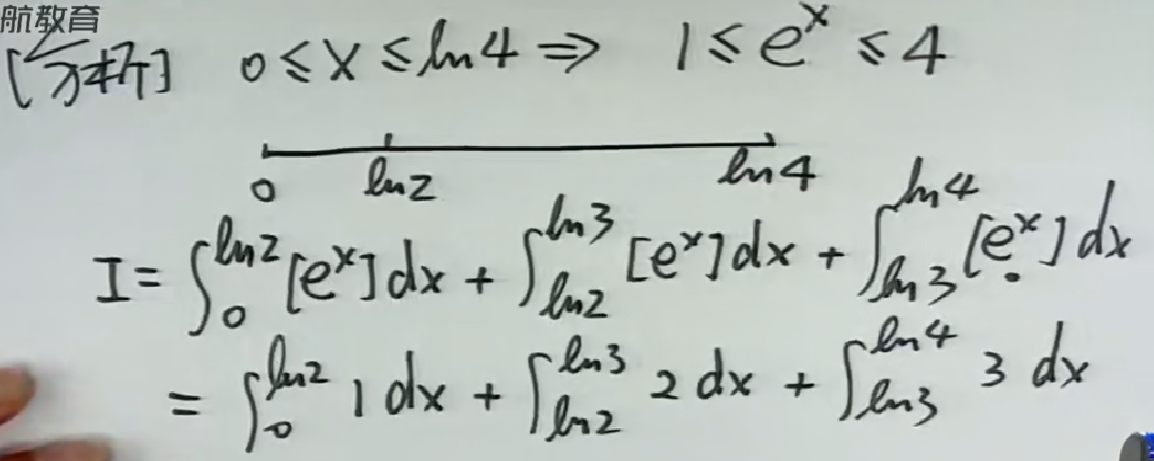 航教育
[分析] 0 ≤ x ≤ ln4 ⇒ 1 ≤ e^x ≤ 4
0 ln2 ln4
I = ∫_0^{ln2} [e^x] dx + ∫_{ln2}^{ln3} [e^x] dx + ∫_{ln3}^{ln4} [e^x] dx
= ∫_0^{ln2} 1 dx + ∫_{ln2}^{ln3} 2 dx + ∫_{ln3}^{ln4} 3 dx